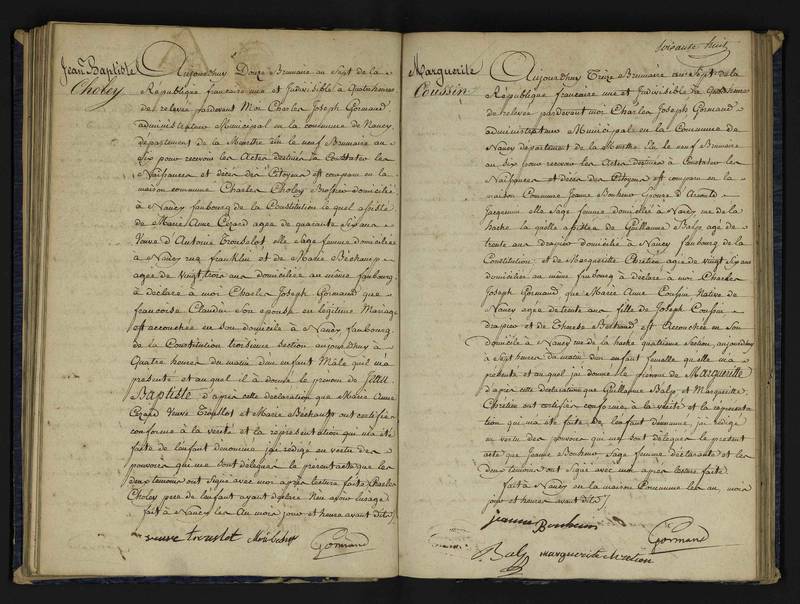 Jean Baptiste
Choley
Aujourdhuy Douze Brumaire au Sept de la
République francaise une et Indivisible à Quatre heures
de relevée pardevant Moi Charles Joseph Gormand
administrateur Municipal en la commune de Nancy,
département de la Meurthe élu le neuf Brumaire au
six pour recevoir les Actes destinés à Constater les
Naissances et décès des Citoyens est comparu en la
maison commune Charles Choley domicilié
à Nancy faubourg de la Constitution le quel assisté
de Marie Anne Cézard agée de quarante Six ans
veuve d'Antoine Trouslot, elle Sage femme domiciliée
à Nancy rue franklin et de Marie Béchamp
agée de Vingt trois ans domiciliée au même faubourg,
à déclaré à moi Charles Joseph Gormand que
francoise Claudin son epouse en légitime Mariage
est accouchée en son domicile à Nancy faubourg
de la Constitution troisieme section aujourdhuy à
Quatre heures du matin d'un enfant Mâle quil m'a
présenté et auquel il à donné le prénom de Jean
Baptiste, d'après cette déclaration que Marie Anne
Cézard Veuve Trouslot et Marie Béchamp ont certifiée
conforme à la vérité et la représentation qui m'a été
faite de lenfant denommé, jai rédigé en vertu des
pouvoirs qui me sont délégués le présent acte que les
deux temoins ont Signé avec moi après lecture faite Charles
Choley pere de lenfant ayant déclaré N'en avoir lusage
fait à Nancy les An mois jour et heure avant dits
veuve trouslot
Gormand
soixante huit
Marguerite
Coussin
Aujourdhuy Treize Brumaire au Sept de la
République francaise une et Indivisible à Quatre heures
de relevée pardevant moi Charles Joseph Gormand
administrateur Municipal en la Commune de
Nancy département de la Meurthe élu le neuf Brumaire
au six pour recevoir les Actes destinés à Constater les
Naissances et décès des Citoyens est comparu en la
maison Commune Jeanne Bonhomme Epouze d'
Jacquemin elle Sage femme domiciliée à Nancy rue de la
hache la quelle assistée de Guillaume Balp agé de
trente ans drapier domicilié à Nancy faubourg de la
Constitution, et de Marguerite Chrétien agée de vingt six ans
domiciliée au même faubourg à déclaré à moi Charles
Joseph Gormand que Marie Anne Coussin Native de
Nancy agée de trente ans fille de Joseph Coussin
drapier et de Therese Bertrand est Accouchée en son
domicile à Nancy rue de la hache quatrieme section, aujourdhuy
à Sept heures du matin d'un enfant femelle qu'elle m'a
présenté et auquel jai donné le prénom de Marguerite
d'après cette déclaration que Guillaume Balp et Marguerite
Chrétien ont certifiée conforme à la vérité et la représenta
tion qui m'a été faite de lenfant dénommé, jai rédigé
en vertu des pouvoirs qui me sont délégués le présent
acte que Jeanne Bonhomme Sage femme déclarante et les
deux temoins ont Signé avec moi après lecture faite
fait à Nancy en la maison Commune les an, mois
jour et heures avant dits
jeanne Bonhomme
Gormand
Balp marguerite chretien